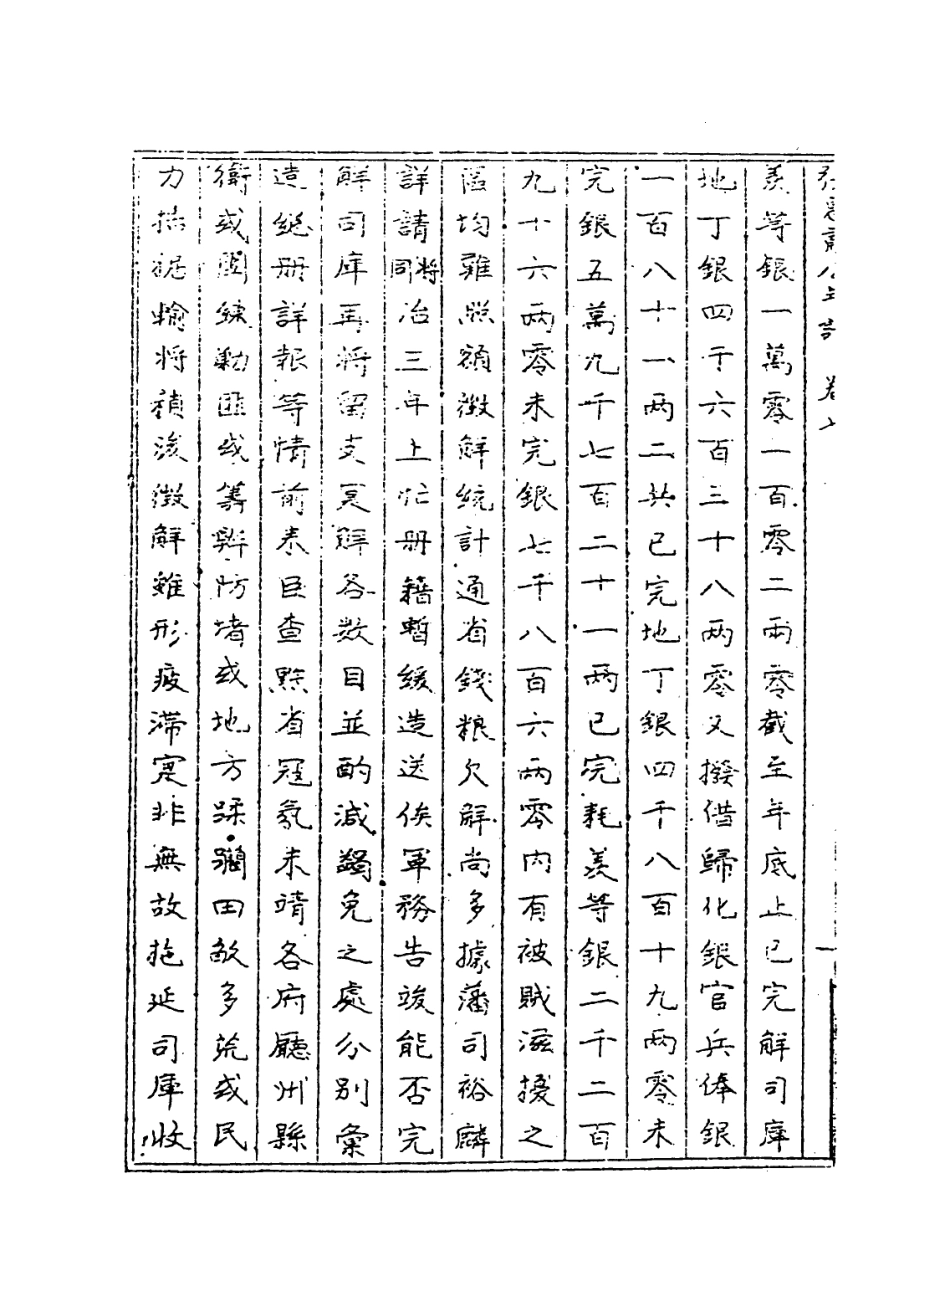 卷七
羨等銀一萬零一百零二兩零截至年底止已完解司庫
地丁銀四千六百三十八兩零又撥借歸化銀官兵俸銀
一百八十一兩二共已完地丁銀四千八百十九兩零未
完銀五萬九千七百二十一兩已完耗羨等銀二千二百
九十六兩零未完銀七千八百六兩零內有被賊滋擾之
區均難照額徵解統計通省錢粮欠解尚多據藩司裕麟
詳請將同治三年上忙册籍暫緩造送俟軍務告竣能否完
解司庫再將留支夏解各數目並酌減蠲免之處分別彙
造總册詳報等情前來臣查黔省冦氛未靖各府廳州縣
衛或團練勦匪或籌辦防堵或地方蹂躪田畝多荒或民
力拮据輸將積渋徵解難形疲滯寔非無故拖延司庫收